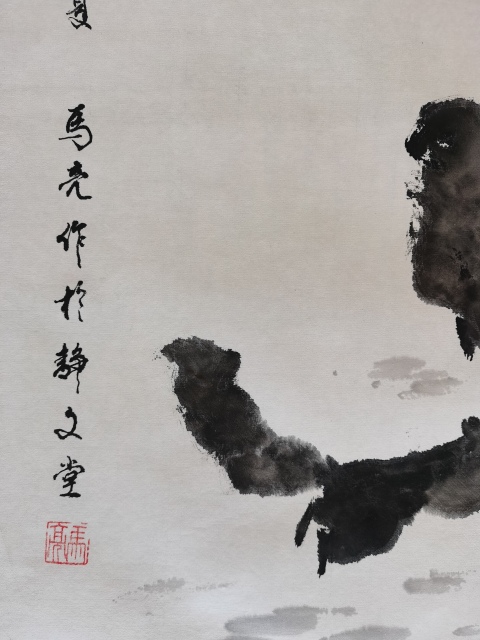 夏 馬亮作於静文堂
馬亮